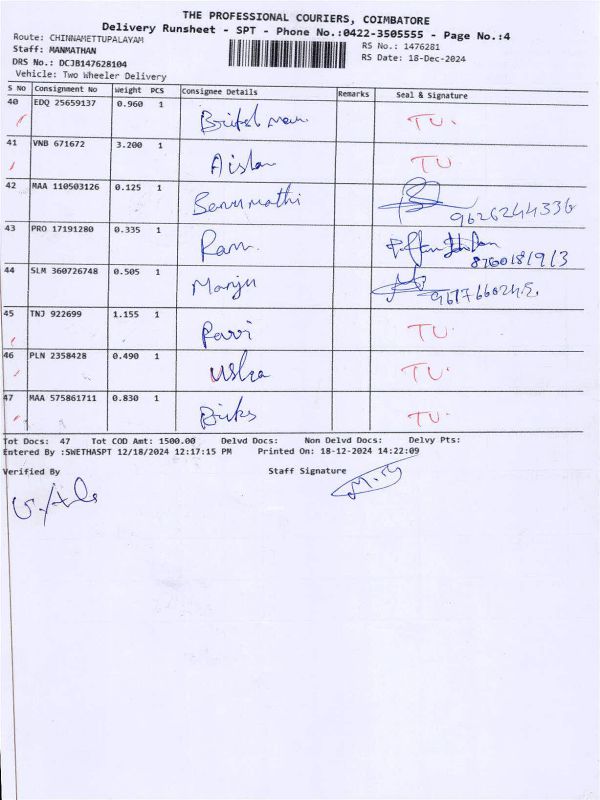 THE PROFESSIONAL COURIERS, COIMBATORE
Delivery Runsheet - SPT - Phone No.:0422-3505555 - Page No.:4
Route: CHINNAMETTUPALAYAM
RS No.: 1476281
Staff: MANMATHAN
RS Date: 18-Dec-2024
DRS No.: DCJB147628104
Vehicle: Two Wheeler Delivery
S No Consignment No Weight PCS Consignee Details Remarks Seal & Signature
40 EDQ 25659137 0.960 1 TU.
41 VNB 671672 3.200 1 TU
42 MAA 110503126 0.125 1 Banumathi 9626244336
43 PRO 17191280 0.335 1 Ram.
44 SLM 360726748 0.505 1 Manju
45 TNJ 922699 1.155 1 Ravi TU.
46 PLN 2358428 0.490 1 Usha TU.
47 MAA 575861711 0.830 1 TU.
Tot Docs: 47 Tot COD Amt: 1500.00 Delvd Docs: Non Delvd Docs: Delvy Pts:
Entered By :SWETHASPT 12/18/2024 12:17:15 PM Printed On: 18-12-2024 14:22:09
Verified By Staff Signature